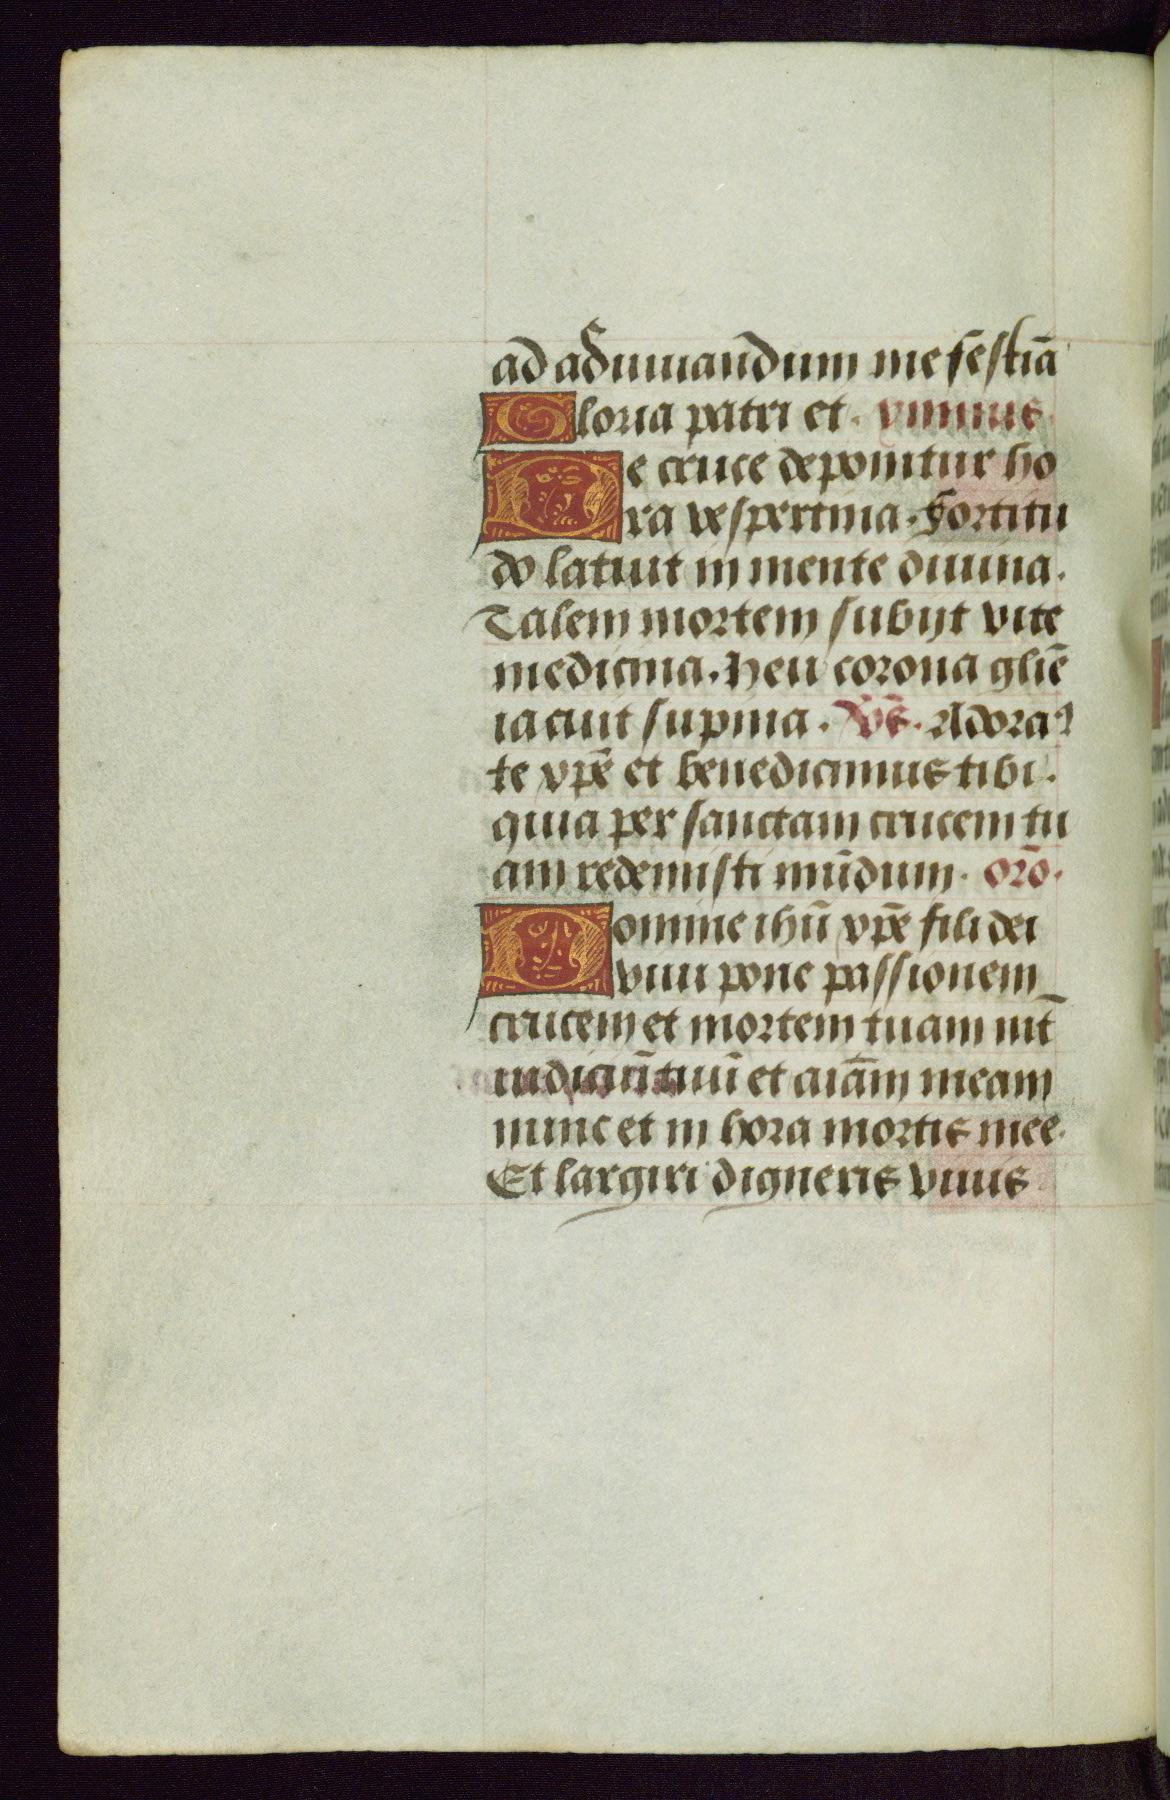 ad adiuuandum me festiā
Gloria patri et. ymnus.
De cruce deponitur ho
ra vespertina. Fortitu
do latuit in mente diuina.
Talem mortem subijt vite
medicina. Heu corona gliē
iacuit supina. v̄s. Adoraꝰ
te xp̄e et benedicimus tibi.
quia per sanctam crucem tu
am redemisti mūdum. orō.
Domine ihū xp̄e fili dei
viui pone passionem
crucem et mortem tuam int̄
iudiciū tuū et aīam meam
nunc et in hora mortis mee.
Et largiri digneris viuis